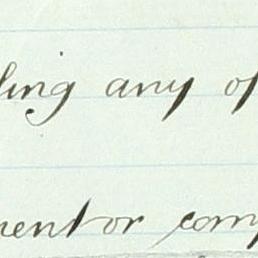 ling any of
ment or com